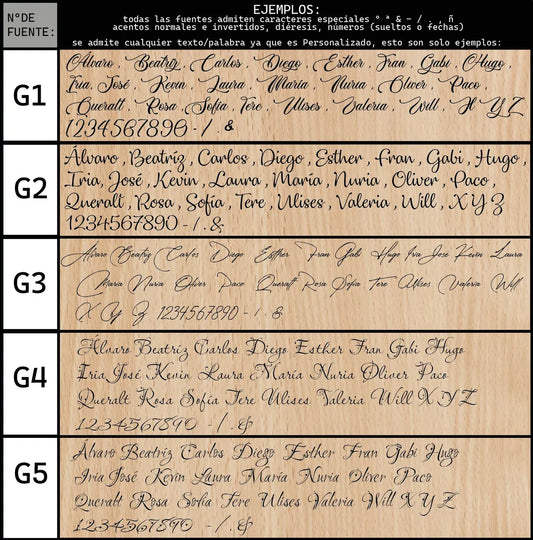 EJEMPLOS:
NºDE FUENTE:
todas las fuentes admiten caracteres especiales º ª & - / . , ñ
acentos normales e invertidos, diéresis, números (sueltos o fechas)
se admite cualquier texto/palabra ya que es Personalizado, esto son solo ejemplos:
G1
Álvaro, Beatríz, Carlos, Diego, Esther, Fran, Gabi, Hugo,
Iria, José, Kevin, Laura, María, Nuria, Oliver, Paco,
Queralt, Rosa, Sofía, Tere, Ulises, Valeria, Will, X Y Z
1234567890 - / . &
G2
Álvaro, Beatríz, Carlos, Diego, Esther, Fran, Gabi, Hugo,
Iria, José, Kevin, Laura, María, Nuria, Oliver, Paco,
Queralt, Rosa, Sofía, Tere, Ulises, Valeria, Will, X Y Z
1234567890 - / . &
G3
Álvaro Beatríz Carlos Diego Esther Fran Gabi Hugo Iria José Kevin Laura
María Nuria Oliver Paco Queralt Rosa Sofía Tere Ulises Valeria Will
X Y Z 1234567890 - / . &
G4
Álvaro Beatríz Carlos Diego Esther Fran Gabi Hugo
Iria José Kevin Laura María Nuria Oliver Paco
Queralt Rosa Sofía Tere Ulises Valeria Will X Y Z
1234567890 - / . &
G5
Álvaro Beatríz Carlos Diego Esther Fran Gabi Hugo
Iria José Kevin Laura María Nuria Oliver Paco
Queralt Rosa Sofía Tere Ulises Valeria Will X Y Z
1234567890 - / . &